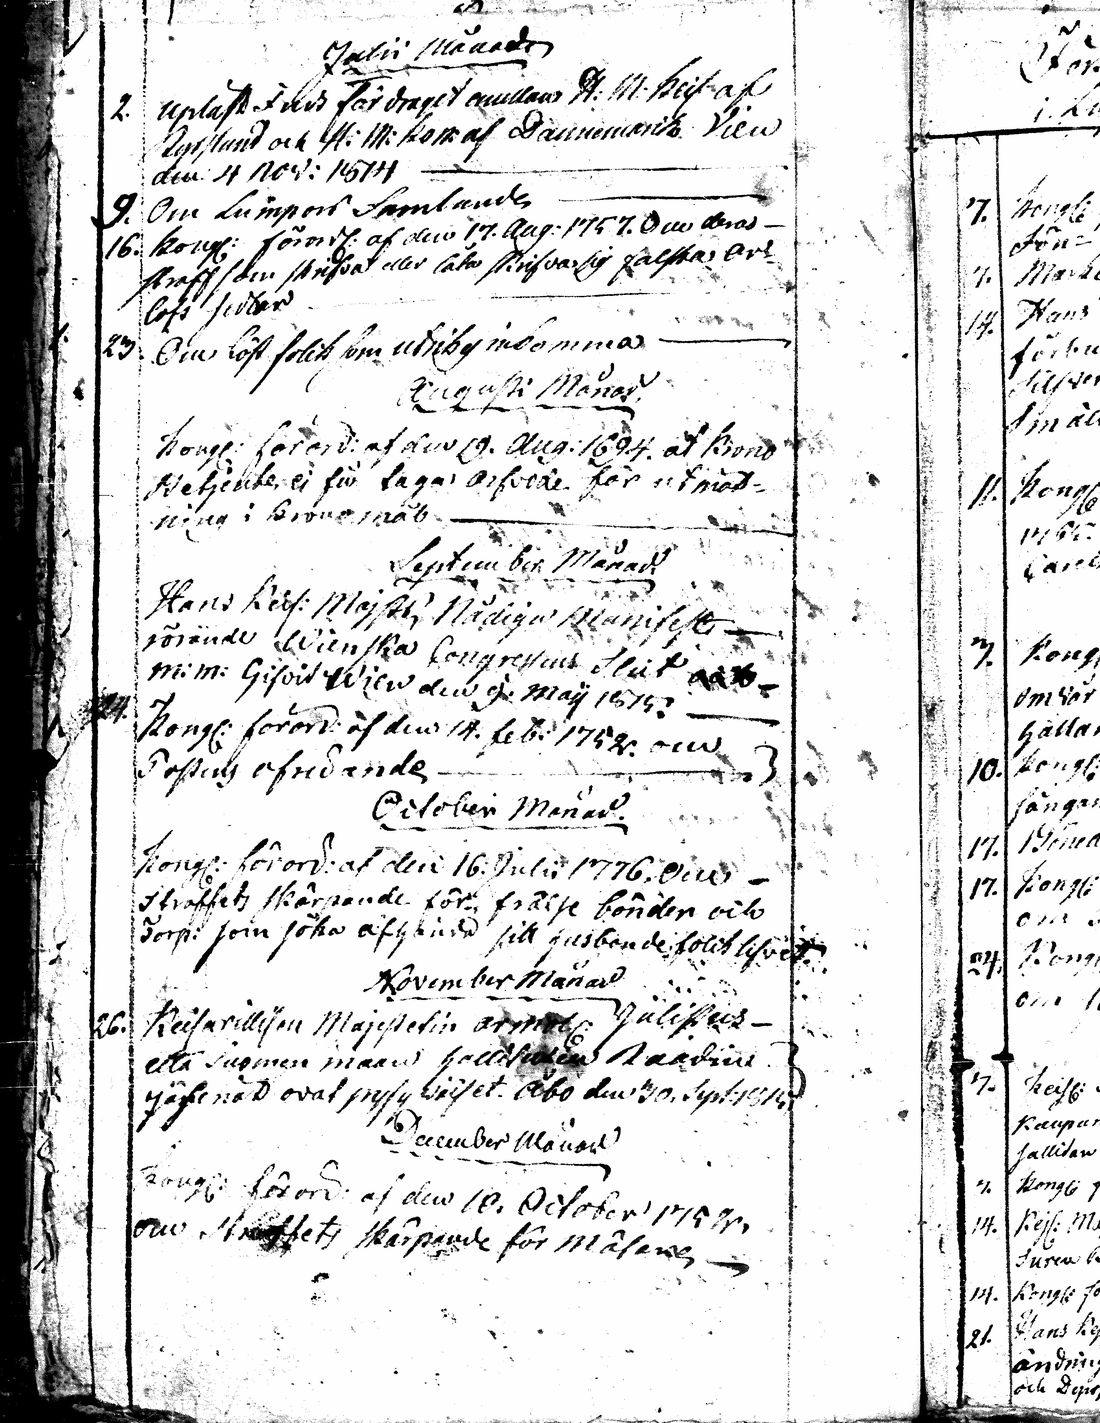 Julii Månad
2. Upläst Freds fördraget emellan H: M: Keis: af
Ryssland och H: M: Kon: af Dannemark Vien
den 4 Nov: 1814
9. Om Lumpors Samlande
16. Kongl: förord: af den 17. Aug: 1757. Om deras
straff som skrifva eller låta skrifva sig falska Or-
lofs sedlar
23. Om löst folk som utrikes inkomma
Augusti Månad.
Kongl: förord: af den 19. Aug: 1694. at Krono
Betjente ej få taga arfvode för utmät-
ning i Krono mål
September Månad
Hans Keis: Majsts Nådiga Manifest
rörande Wienska Congressens Slut
m: m: Gifvit Wien den 9. Maij 1815
24. Kongl: förord: af den 14. feb: 1752. om
Postens ofredande
October Månad.
Kongl: förord: af den 16. Julii 1776. Om
straffets skärpande för frälse bönder och
Torp: som söka afhända sitt husbonde folk lifvet.
November Månad
26. Keisarillisen Majestetin armol: Julistus
että Suomen maan hallituxen Raadin
jäsenet ovat pysyväiset. Åbo den 30. Sept: 1815
December Månad
Kongl: förord: af den 10. October 1752,
om straffets skärpande för Mäsare
För
i. Lu
7. Kongl:
för-
7. Marke
14. Hans
förbu
Silfver
Smält
11. Kongl
1765.
Carel
3. Kong
om vår
hållan
10. Kongl:
fångar
17. Döma
17. Kongl:
om
24. Kong
om
7. Keisl:
Kaupun
hallitan
7. Kongl:
14. Keis: Ma
Suren
14. Kongl: fö
21. Hans Kej
ändring
och Depo